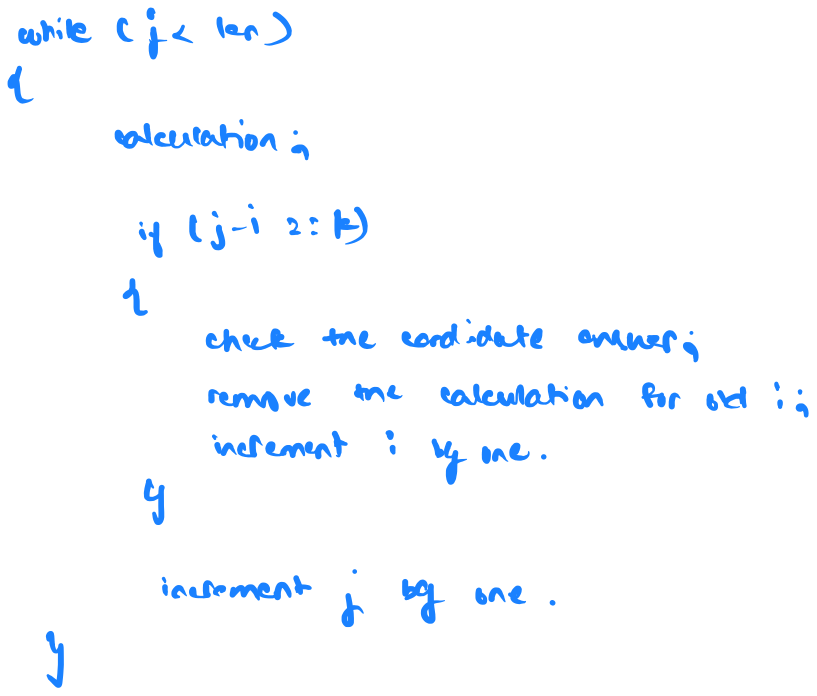 while (j < len)
{
calculation;
if (j-i == k)
{
check the candidate answer;
remove the calculation for old i;
increment i by one.
}
increment j by one.
}